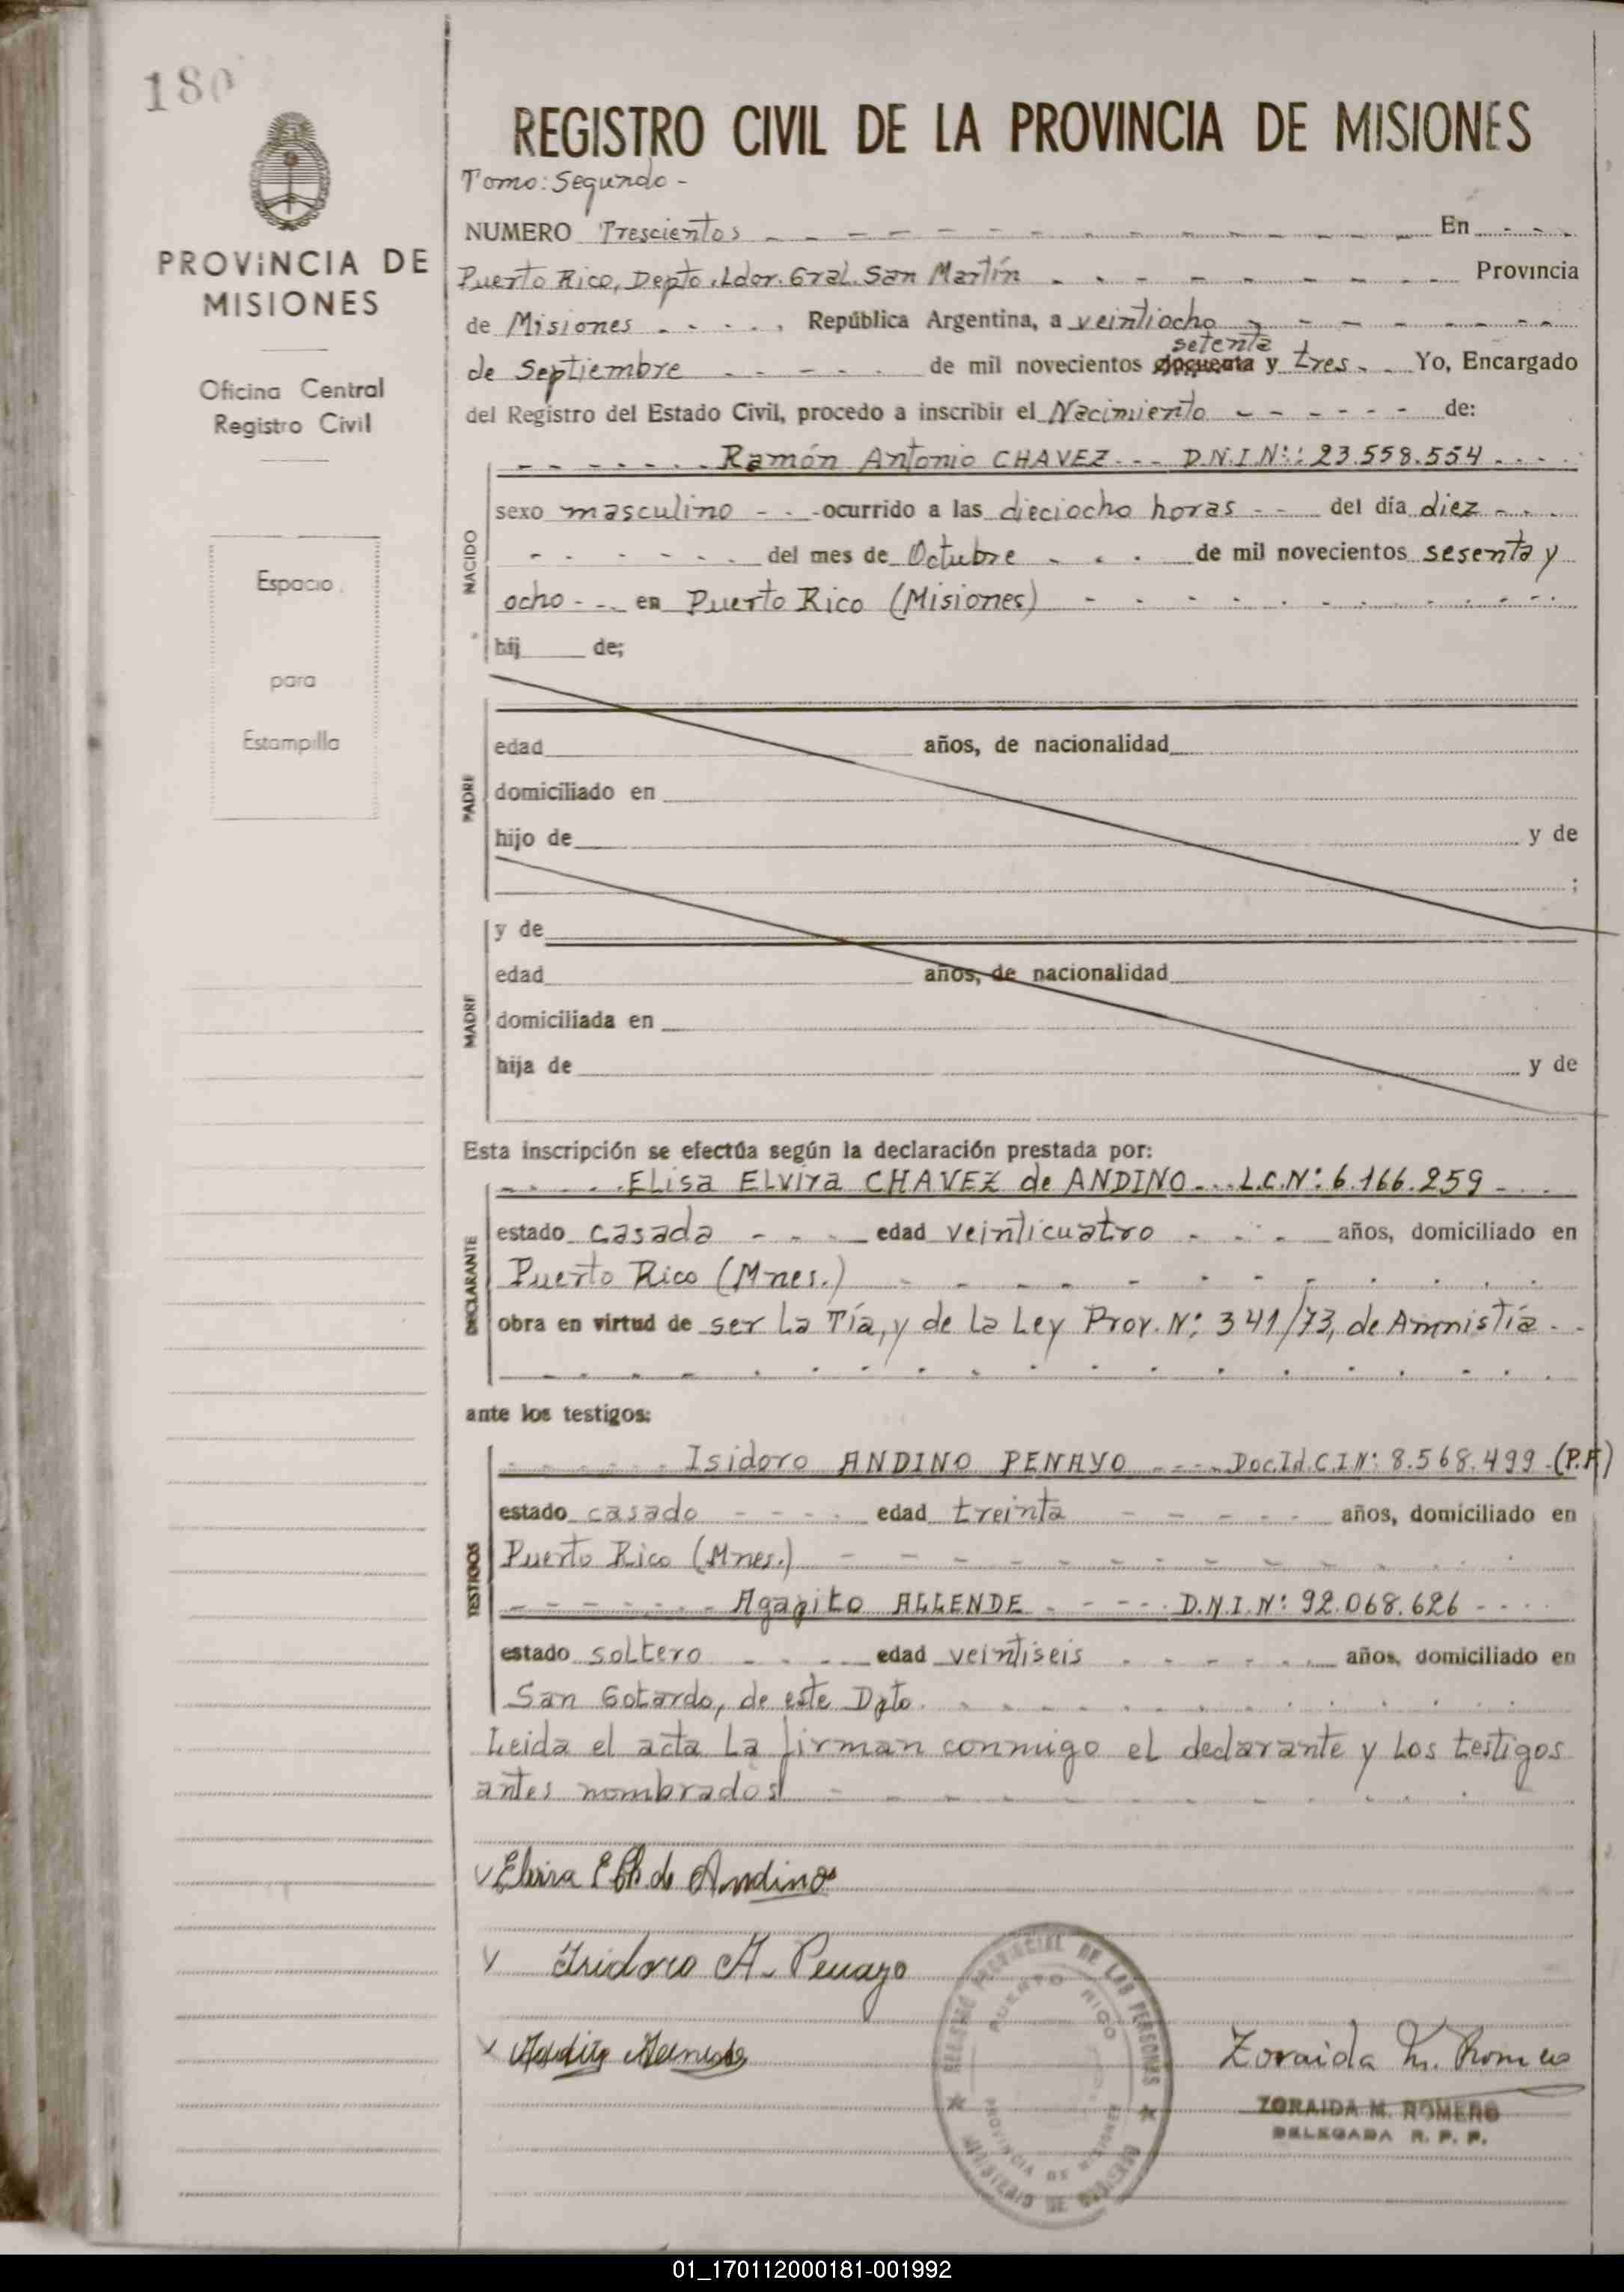 180
REGISTRO CIVIL DE LA PROVINCIA DE MISIONES
PROVINCIA DE
MISIONES
Oficina Central
Registro Civil
Espacio
para
Estampilla
Tomo: Segundo -
NUMERO Trescientos En
Puerto Rico, Depto. Ldor. Gral. San Martín Provincia
de Misiones, República Argentina, a veintiocho
setenta
de Septiembre de mil novecientos cincuenta y tres Yo, Encargado
del Registro del Estado Civil, procedo a inscribir el Nacimiento de:
NACIDO
Ramón Antonio CHAVEZ D.N.I.N°: 23.558.554
sexo masculino ocurrido a las dieciocho horas del día diez
del mes de Octubre de mil novecientos sesenta y
ocho en Puerto Rico (Misiones)
hij de;
PADRE
edad años, de nacionalidad
domiciliado en
hijo de y de
;
MADRE
y de
edad años, de nacionalidad
domiciliada en
hija de y de
Esta inscripción se efectúa según la declaración prestada por:
DECLARANTE
Elisa Elvira CHAVEZ de ANDINO L.C.N°: 6.166.259
estado casada edad veinticuatro años, domiciliado en
Puerto Rico (Mnes.)
obra en virtud de ser la Tía, y de la Ley Prov. N°: 341/73, de Amnistía
ante los testigos:
TESTIGOS
Isidoro ANDINO PENAYO Doc.Id.C.I.N°: 8.568.499 (P.F.)
estado casado edad treinta años, domiciliado en
Puerto Rico (Mnes.)
Agapito ALLENDE D.N.I.N°: 92.068.626
estado soltero edad veintiseis años, domiciliado en
San Gotardo, de este Dpto.
Leida el acta la firman conmigo el declarante y los testigos
antes nombrados
Elvira E Ch. de Andino
Isidoro A. Penayo
Zoraida M. Romero
ZORAIDA M. ROMERO
DELEGADA R. P. P.
REGISTRO PROVINCIAL DE LAS PERSONAS
PUERTO RICO
PROVINCIA DE MISIONES
MINISTERIO DE GOBIERNO
01_170112000181-001992